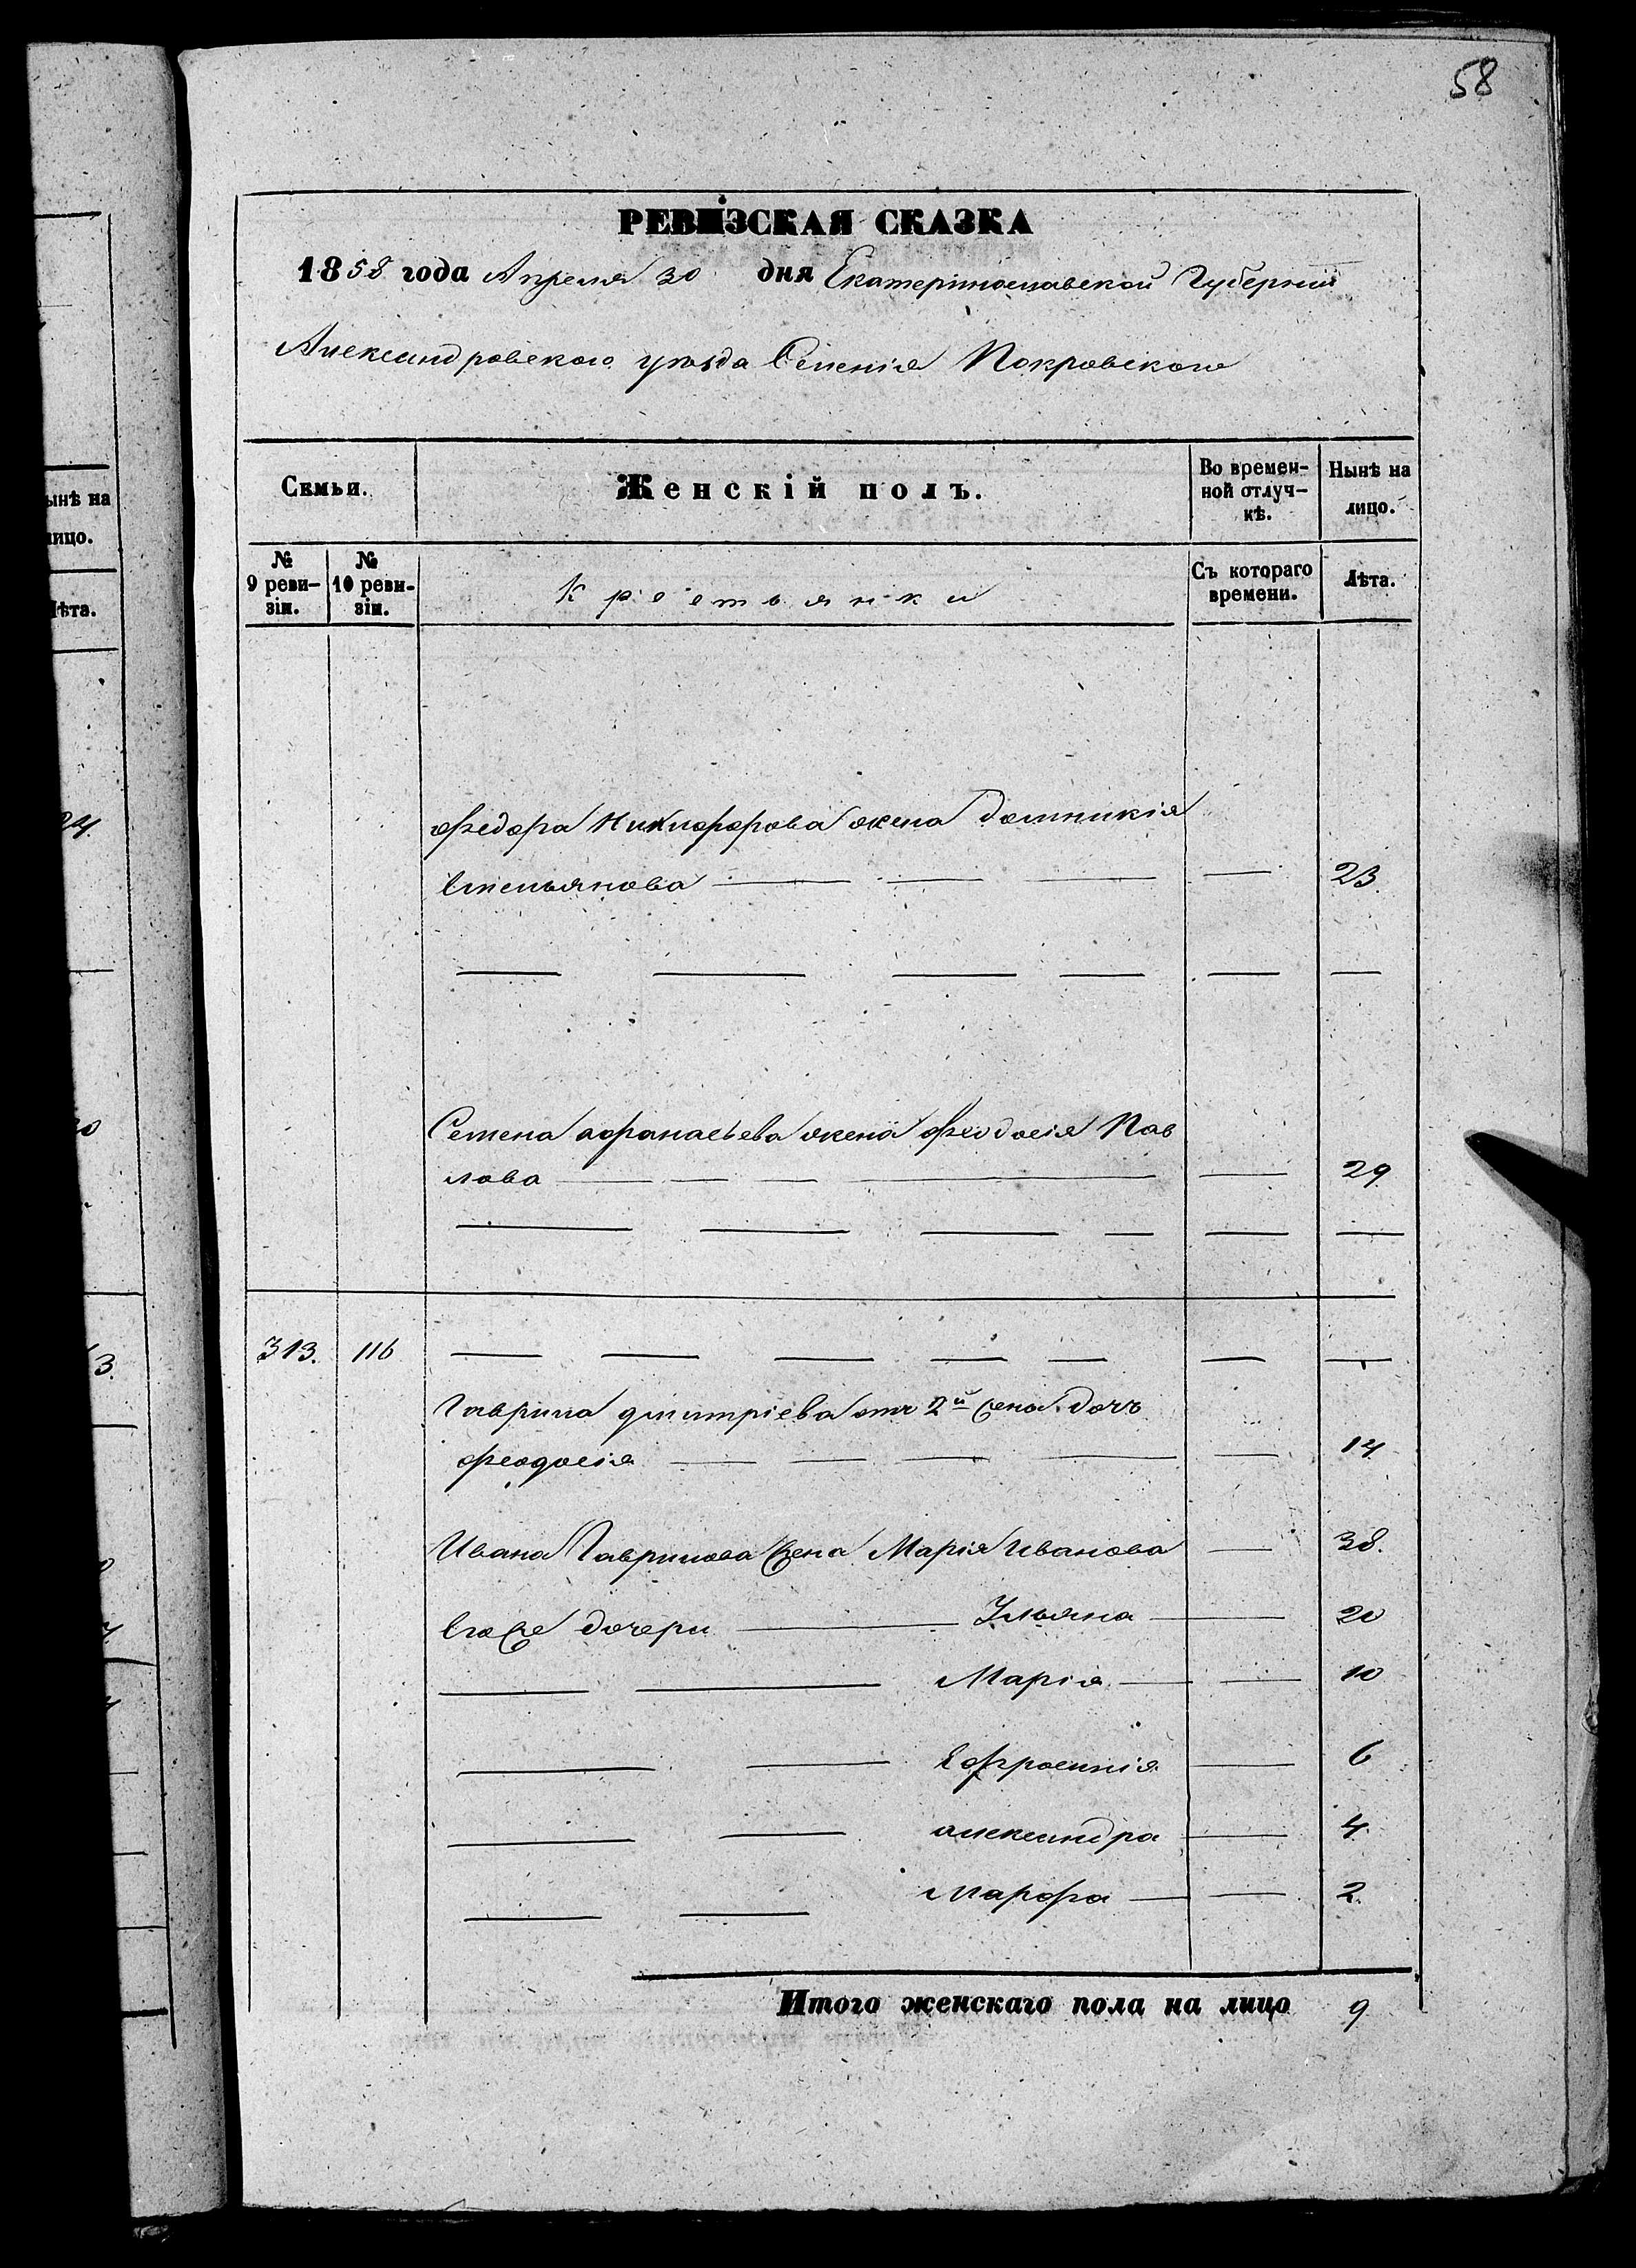 58
РЕВИЗСКАЯ СКАЗКА
1858 года Апреля 30 дня Екатеринославской Губерніи
Александровского уѣзда Селенія Покровского
Семьи.
Женскій полъ.
Во времен-
ной отлуч-
кѣ.
Нынѣ на
лицо.
№
9 реви-
зіи.
№
10 реви-
зіи.
Крестьянки
Съ котораго
времени.
Лѣта.
ынѣ на
лицо.
Лѣта.
24.
3.
Федора Никифорова жена Домникія
Емельянова 23.
Семена Афанасьева жена Феодосія Пав
лова 29
313. 116
Гаврила Дмитріева отъ 2й жены дочь
Феодосія 14
Ивана Гаврилова жена Марія Иванова 38.
Егоже дочери Ульяна 20
Марія 10
Ефросинія 6
Александра 4.
Марфа 2.
Итого женскаго пола на лицо 9